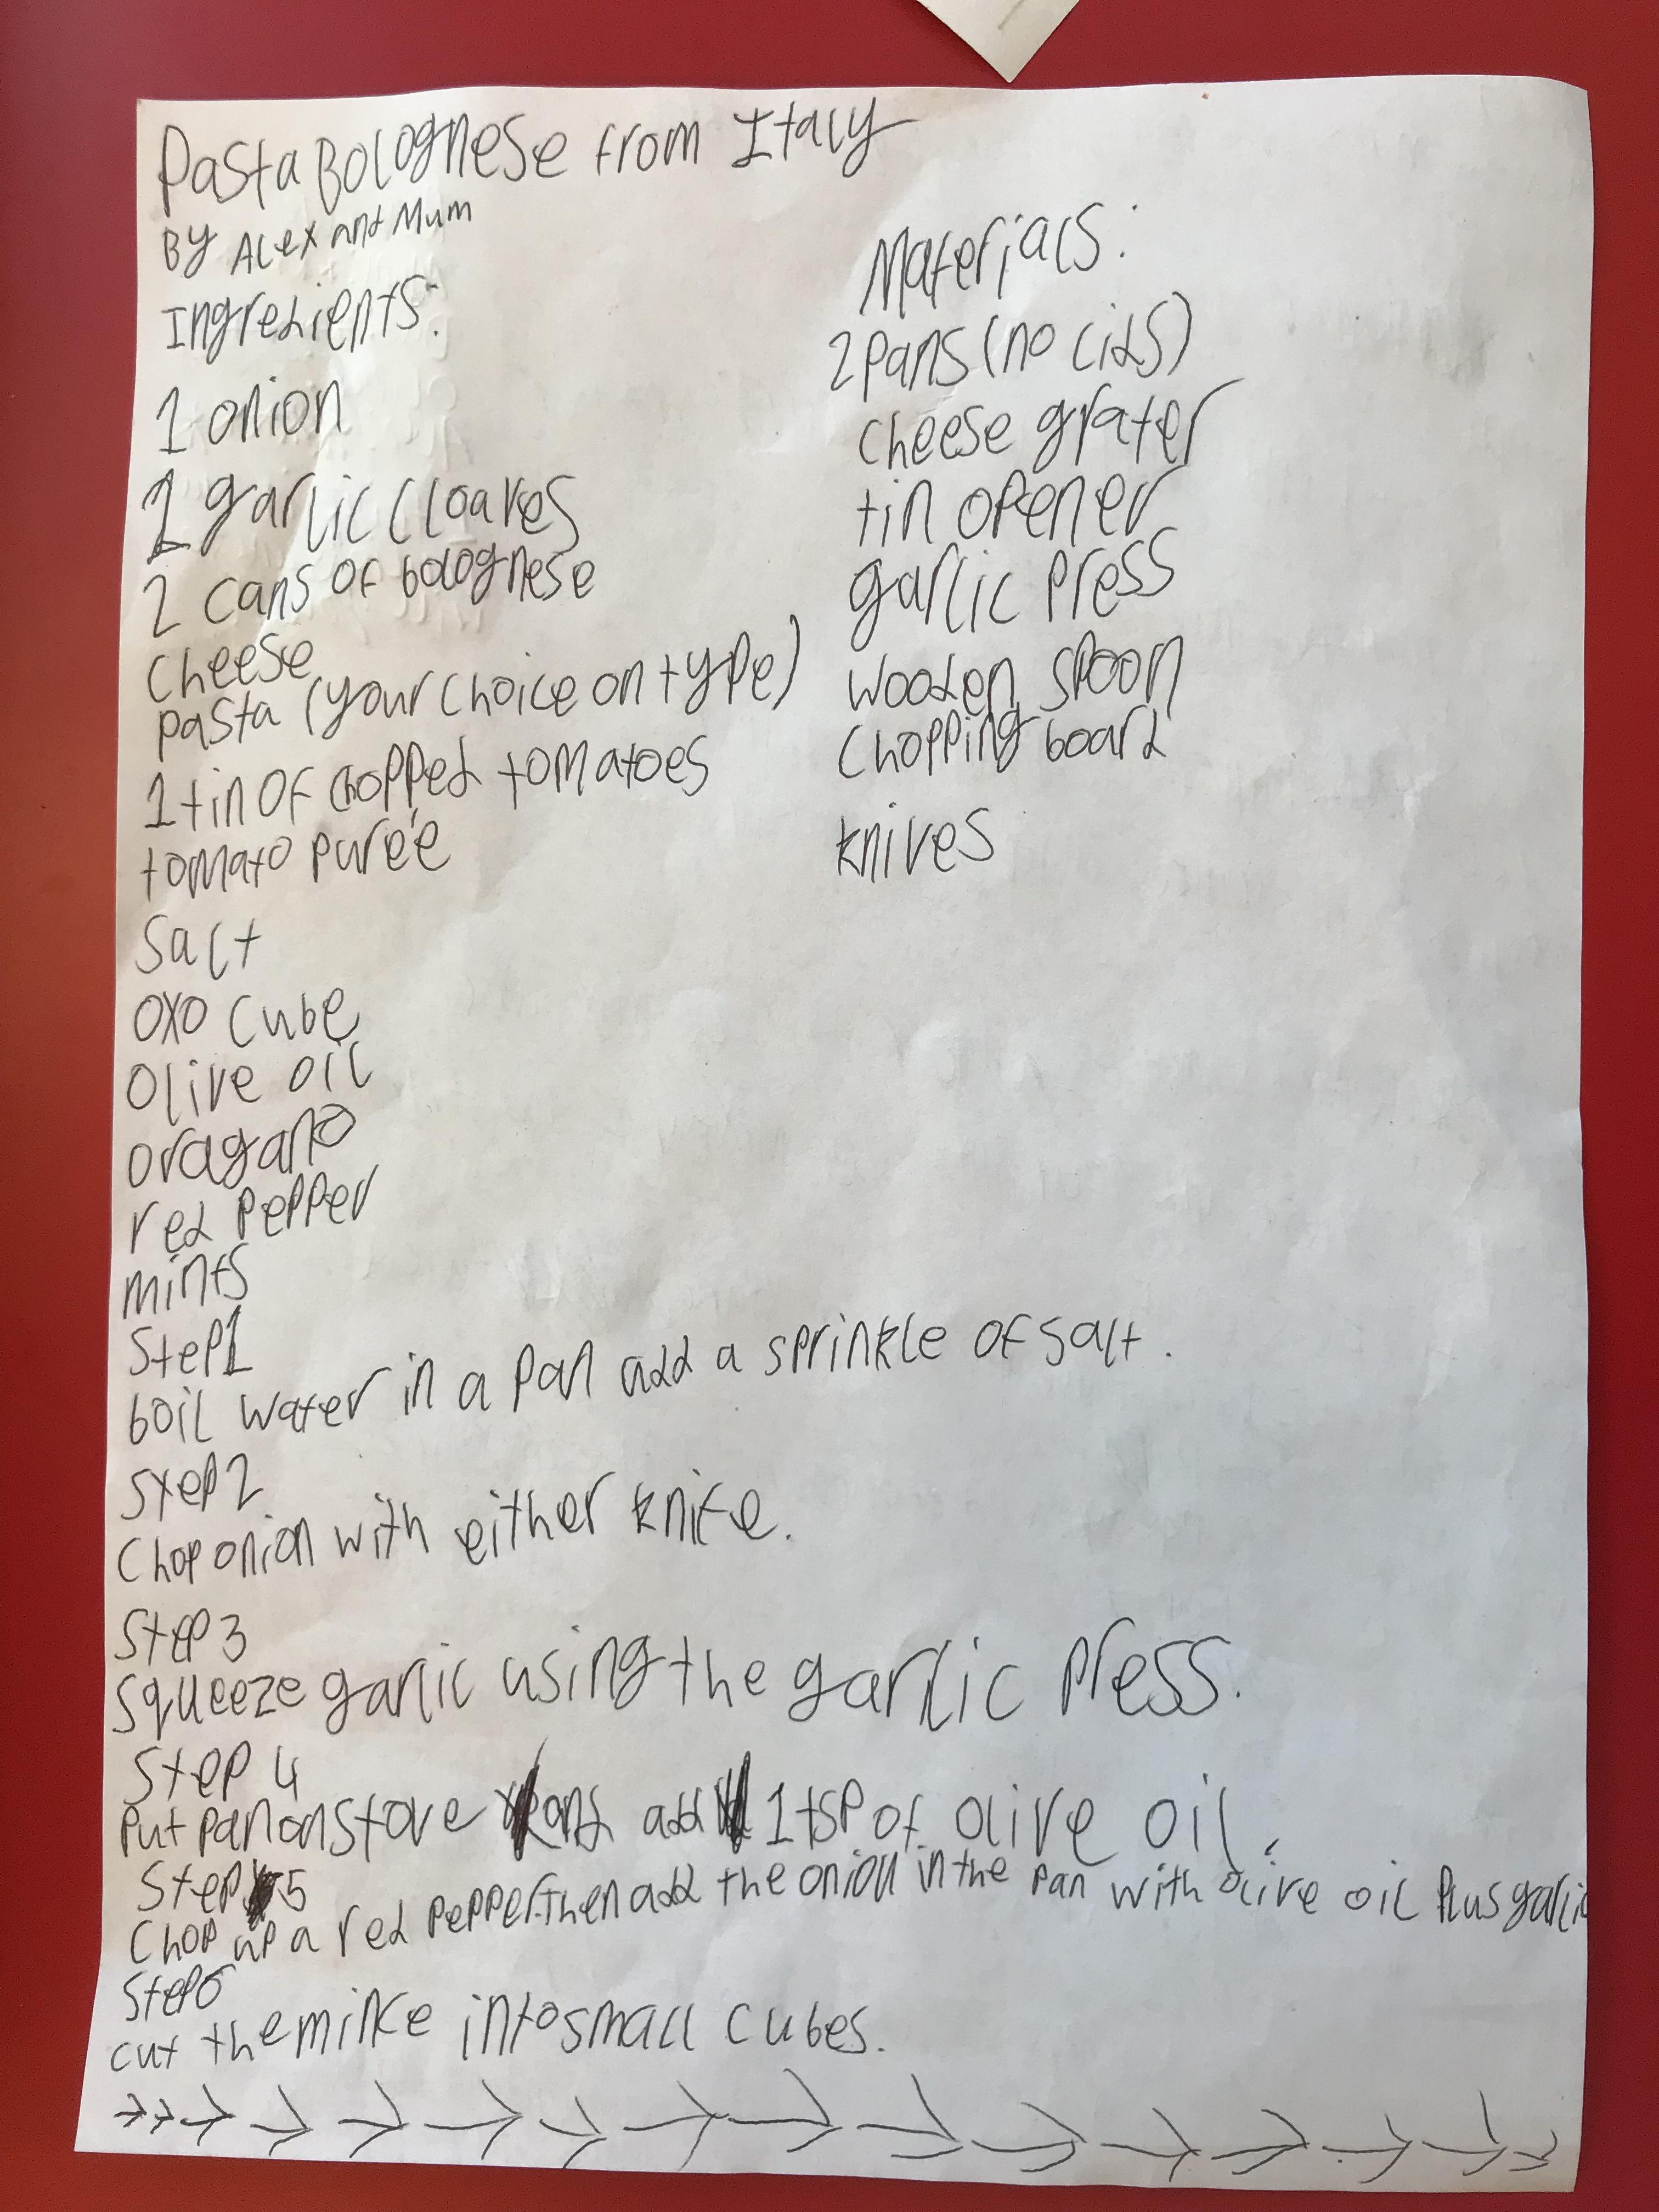 Pasta Bolognese from Italy
By Alex and Mum
Ingredients:
1 onion
2 garlic cloaves
2 cans of bolognese
cheese
pasta (your choice on type)
1 tin of chopped tomatoes
tomato purée
salt
oxo cube
olive oil
oragano
red pepper
mints
Materials:
2 pans (no lids)
cheese grater
tin opener
garlic press
wooden spoon
chopping board
knives
Step 1
boil water in a pan add a sprinkle of salt.
Step 2
Chop onion with either knife.
Step 3
squeeze garlic using the garlic press.
Step 4
Put pan on stove and add 1 tsp of olive oil.
Step 5
Chop up a red pepper. Then add the onion in the pan with olive oil plus garlic
Step 6
cut the minke into small cubes.